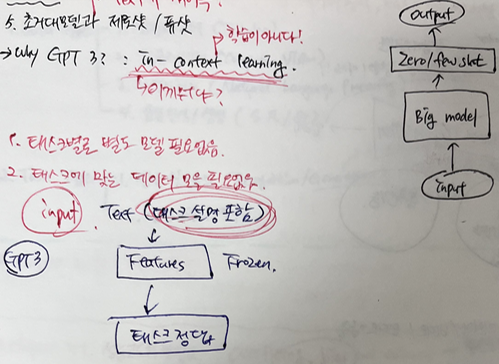 5. 초거대모델과 제로샷 / 퓨샷
학습이 아니다!
→ Why GPT 3? : in-context learning.
1. 태스크별로 별도 모델 필요없음.
2. 태스크에 맞는 데이터 모을 필요없음.
input Text (태스크 설명 포함)
GPT3 Features Frozen.
태스크 정답
output
Zero/few shot
Big model
input